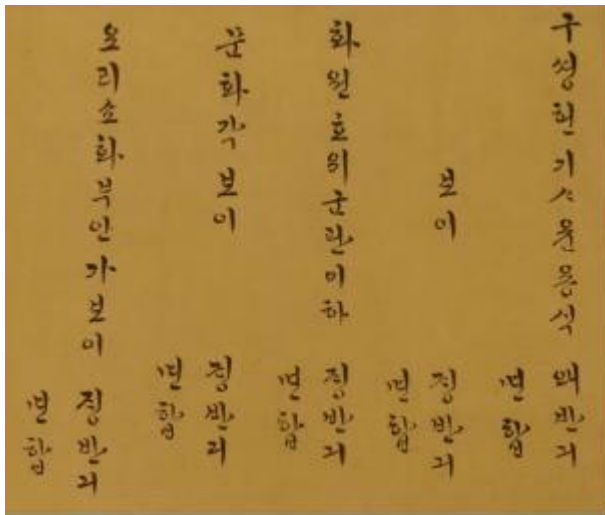 구셩헌기ᄉᆞ윤용식 왜반기
면합
보이 졍반기
면합
화원호위군관이하 졍반기
면합
문화각보이 졍반기
면합
오리쇼화부인가보이 졍반기
면합